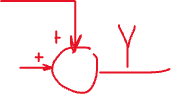 +
Y
+